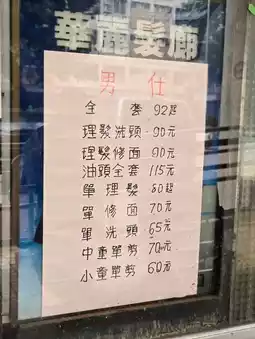 華麗髮廊
男仕
全套 92起
理髮洗頭 90元
理髮修面 90元
油頭全套 115元
單理髮 80起
單修面 70元
單洗頭 65元
中童單剪 70元
小童單剪 60元